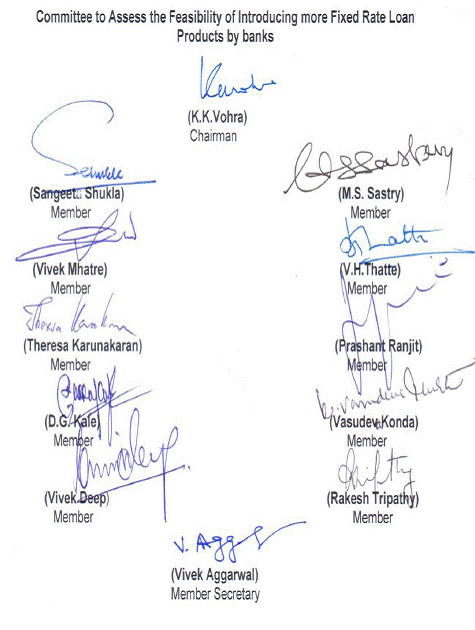 Committee to Assess the Feasibility of Introducing more Fixed Rate Loan
Products by banks
(K.K.Vohra)
Chairman
(Sangeeta Shukla)
Member
(M.S. Sastry)
Member
(Vivek Mhatre)
Member
(V.H.Thatte)
Member
Theresa Karakun
(Theresa Karunakaran)
Member
(Prashant Ranjit)
Member
(D.G.Kale)
Member
(Vasudev.Konda)
Member
(Vivek.Deep)
Member
(Rakesh Tripathy)
Member
V. Aggar
(Vivek Aggarwal)
Member Secretary